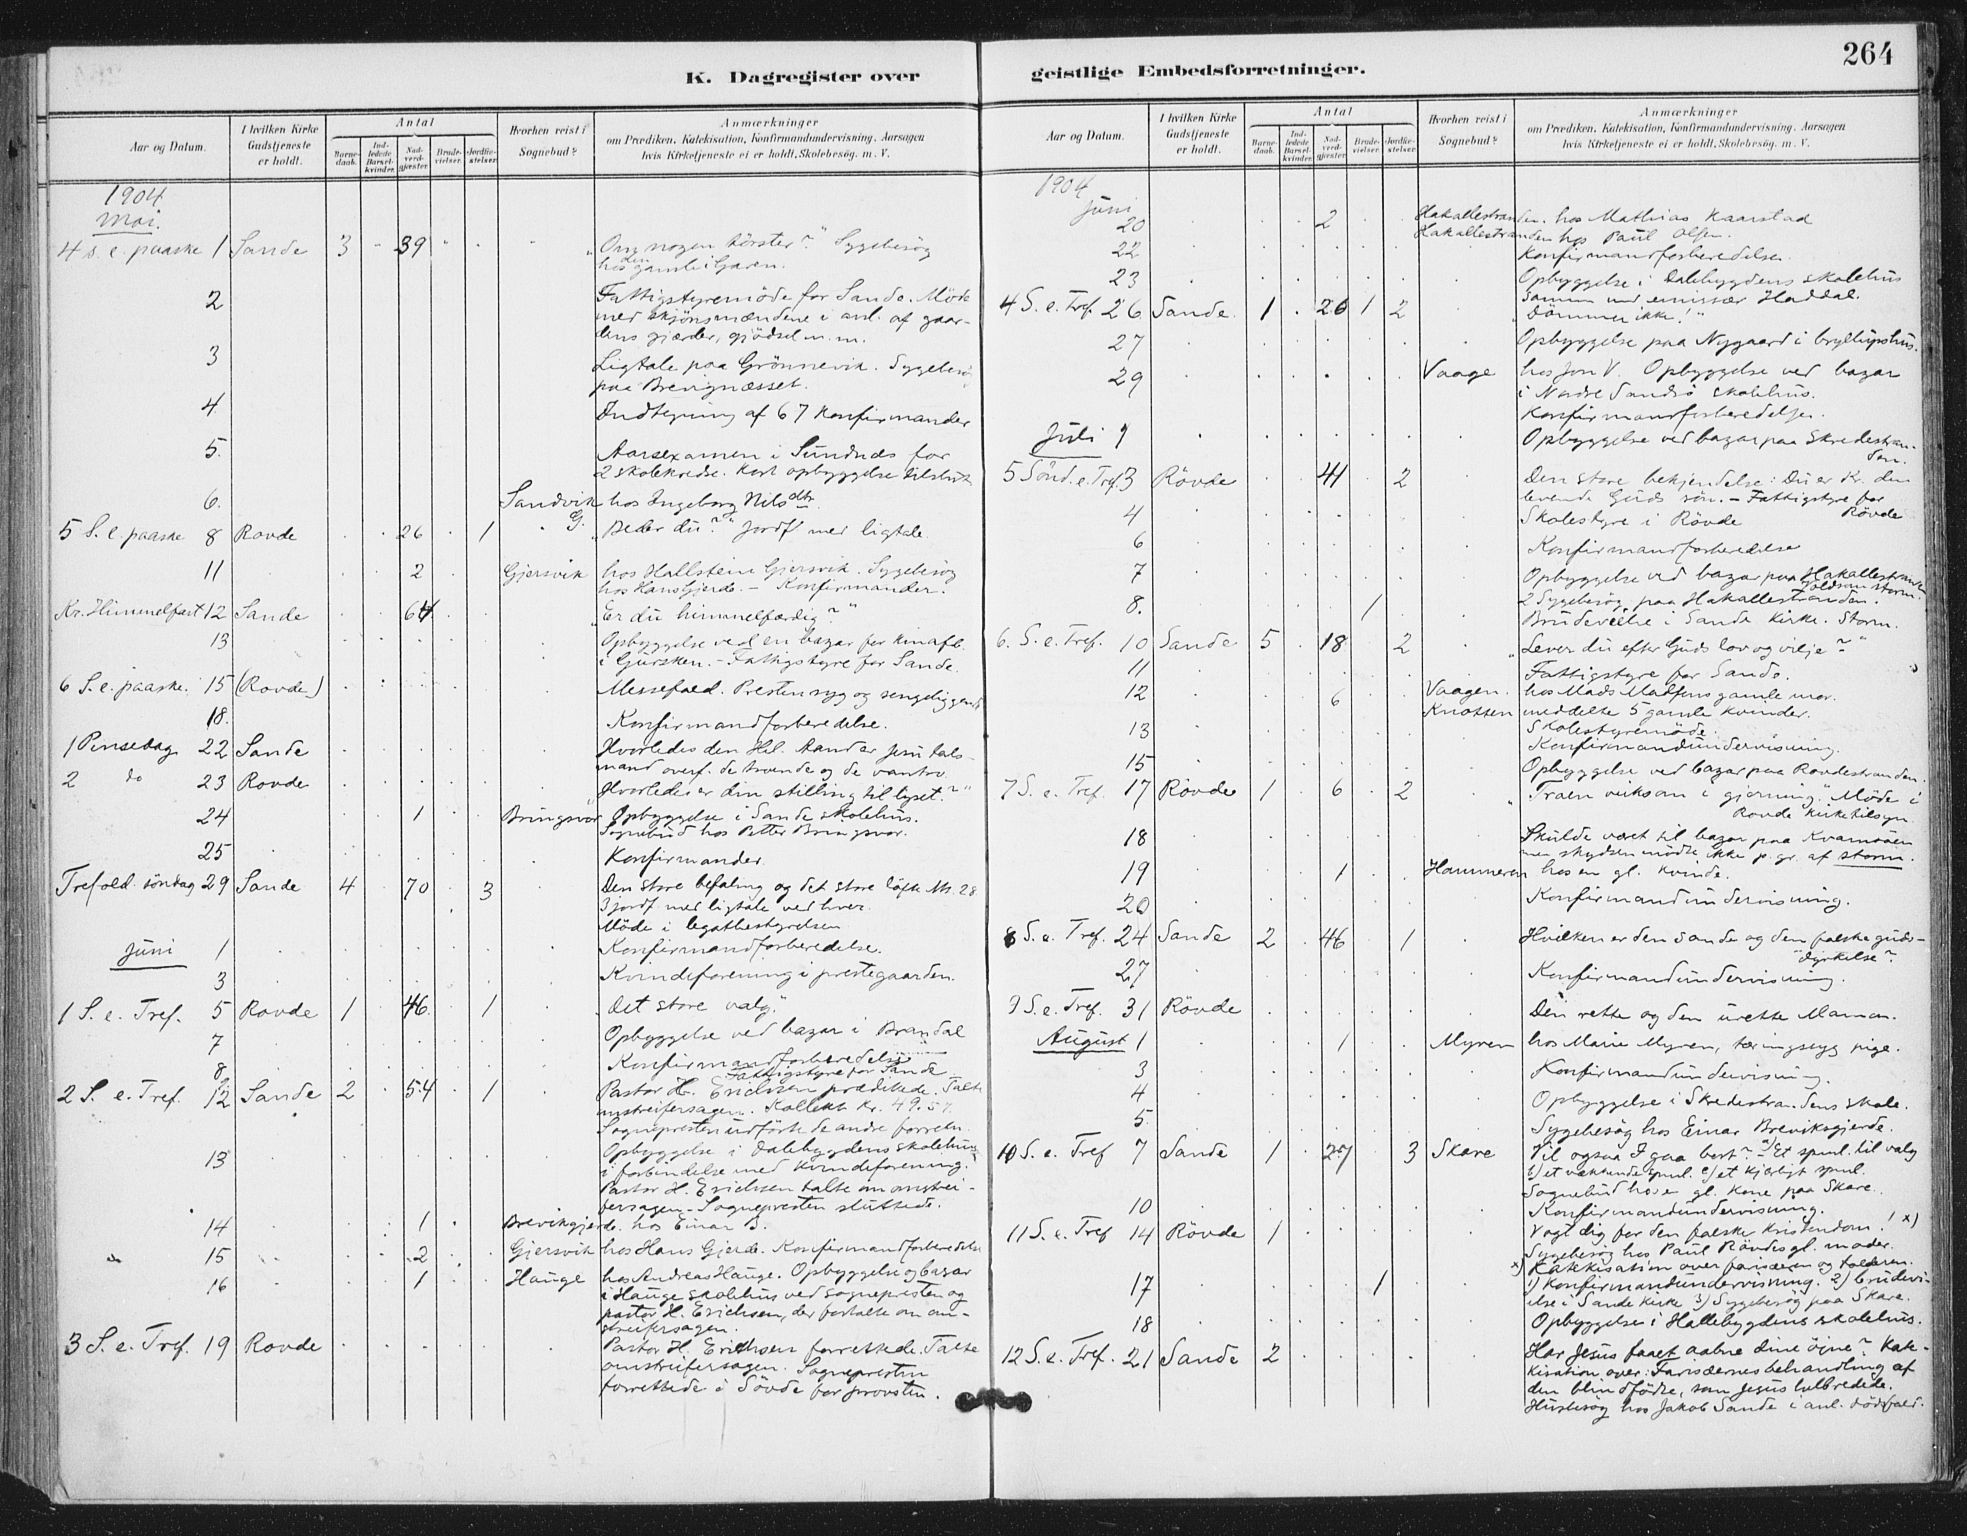 264
K. Dagregister over geistlige Embedsforretninger.
Aar og Datum.
I hvilken Kirke Gudstjeneste er holdt.
Antal
Barne-daab.
Ind-ledede Barsel-kvinder.
Nad-verd-gjester
Brude-vielser.
Jordfæ-stelser.
Hvorhen reist i Sognebud?
Anmærkninger
om Prædiken, Katekisation, Konfirmandundervisning, Aarsagen
hvis Kirketjeneste ei er holdt, Skolebesøg. m. V.
1904
Mai.
4 S. e. paaske 1 Sande 3 39 "Om nogen törster?" Sygebesög
hos den gamle i Garen.
2 Fattigstyremöde for Sande. Möde
med skjönsmændene i anl. af gaar-
dens gjærder, gjödsel m. m.
3 Ligtale paa Grönnevik. Sygebesög
paa Brevignæsset.
4 Indtegning af 67 Konfirmander
5. Aarsexamen i Sundnes for
2 skolekredse. Kort opbyggelse tilslut
6. Sandvik G. hos Ingeborg Nilsdtr.
5 S. e. paaske 8 Rovde 26 1 "Beder du?" Jordf. med ligtale
11 2 Gjersvik hos Hallstein Gjersvik. Sygebesög
hos Hans Gjerde. – Konfirmander.
Kr. Himmelfart 12 Sande 64 "Er du himmelfærdig?"
13 Opbyggelse ved en bazar for Kinafb.
i Gursken. – Fattigstyre for Sande.
6 S. e. paaske. 15 (Rovde) Messefald. Presten syg og sengeliggende
18. Konfirmandforberedelse.
1 Pinsedag 22 Sande Hvorledes den Hel. Aand er Jesu tals-
mand overf. de troende og de vantro.
2 do 23 Rovde "Hvorledes er din stilling til lyset?"
24 1 Bringsvor Opbyggelse i Sande skolehus.
Sognebud hos Petter Bringsvor.
25 Konfirmander.
Trefold. söndag 29 Sande 4 70 3 Den store befaling og det store löfte Mt. 28
3 jordf. med ligtale ved hver.
Möde i legatbestyrelsen
Juni 1 Konfirmandforberedelse.
3 Kvindeforening i prestegaarden.
1 S. e. Tref. 5 Rovde 1 46 1 "Det store valg."
7 Opbyggelse ved bazar i Brandal
8 Konfirmandforberedelse
Fattigstyre for Sande
2 S. e. Tref. 12 Sande 2 54 1 Pastor H. Erichsen prædikede. Talte
omstreifersagen. Kollekt kr. 49.57.
Sognepresten udförte de andre forretn.
13 Opbyggelse i Dalebygdens skolehus
i forbindelse med Kvindeforening.
Pastor H. Erichsen talte om omstrei-
fersagen. – Sognepresten sluttede.
14 1 Brevikgjerde. hos Einar B.
15 2 Gjersvik hos Hans Gjerde. Konfirmandforberedelse
16 1 Hauge hos Andreas Hauge. Opbyggelse og bazar
i Hauge skolehus ved sognepresten og
pastor H. Erichsen, der fortalte om om-
streifersagen.
3 S. e. Tref. 19 Rovde Pastor H. Erichsen forrettede. Talte
omstreifersagen. Sognepresten
forrettede i Sövde for provsten.
Aar og Datum.
I hvilken Kirke Gudstjeneste er holdt.
Antal
Barne-daab.
Ind-ledede Barsel-kvinder
Nad-verd-gjester
Brude-vielser.
Jordfæ-stelser
Hvorhen reist i Sognebud?
Anmærkninger
om Prædiken, Katekisation, Konfirmandundervisning, Aarsagen
hvis Kirketjeneste ei er holdt, Skolebesøg. m. V.
1904
Juni
20 2 Hakallestranden. hos Mathias Kaarstad
Hakallestranden hos Paul Olsen.
22 Konfirmandforberedelse.
23 Opbyggelse i Dalebygdens skolehus
sammen med emissær Haddal.
4 S. e. Tref. 26 Sande. 1 20 1 2 "Dömmer ikke!"
27 Opbyggelse paa Nygaard i bryllupshus.
29 Vaage hos Jon V. Opbyggelse ved bazar
i Nordre Sandsö skolehus.
Konfirmandforberedelse.
Juli 1 Opbyggelse ved bazar paa Skredestran-
den.
5 Sönd. e. Tref. 3 Rövde 41 2 Den store bekjendelse: Du er Kr. den
levende Guds sön. – Fattigstyre for
Rövde
4 Skolestyre i Rövde
6 Konfirmandforberedelse
7 Opbyggelse ved bazar paa Hakallestranden
Voldsom storm.
8. 1 2 Sygebesög paa Hakallestranden.
Brudevielse i Sande Kirke. Storm.
6. S. e. Tref. 10 Sande 5 18 2 "Lever du efter Guds lov og vilje?"
11 Fattigstyre for Sande.
12 6 Vaagen. hos Mads Madsens gamle mor.
Knotten meddelte 5 gamle kvinder.
13 Skolestyremöde.
Konfirmandundervisning.
15 Opbyggelse ved bazar paa Rovdestranden.
7 S. e. Tref. 17 Rövde 1 6 2 "Troen virksom i gjerning." Möde i
Rovde Kirketilsyn
18 Skulde været til bazar paa Kvamsöen
men skydsen mödte ikke p. gr. af storm.
19 1 Hammeren hos en gl. Kvinde.
20 Konfirmandundervisning.
8 S. e. Tref. 24 Sande 2 46 1 Hvilken er den sande og den falske guds-
dyrkelse?
27 Konfirmandundervisning.
9 S. e. Tref. 31 Rövde Den rette og den urette Mamon.
August 1 1 Myren hos Marie Myren, tæringssyg pige.
3 Konfirmandundervisning.
4 Opbyggelse i Skredestrandens skole.
5. Sygebesög hos Einar Breviksgjerde.
10 S. e. Tref 7 Sande 1 27 3 Skare Vil ogsaa I gaa bort? a) Et spml. til valg
b) et vækkende spml. c) et kjærligt spml.
Sognebud hos en gl. Kone paa Skare.
10 Konfirmandundervisning.
11 S. e. Tref 14 Rövde 1 Vogt dig for den falske Kristendom! x)
Sygebesög hos Paul Rövdes gl. moder.
x) Katekisation over farisæeren og tolderen.
17 1 1) Konfirmandundervisning. 2) Brudevi-
else i Sande Kirke 3) Sygebesög paa Skare.
18 Opbyggelse i Hallebygdens skolehus.
12 S. e. Tref. 21 Sande 2 Har Jesus faaet aabne dine öine? Kate-
kisation over: Farisæernes behandling af
den blindfödte, som Jesus helbredede.
Husbesög hos Jakob Sande i anl. dödsfald.